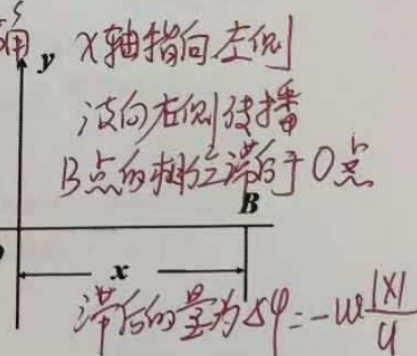 y x轴指向左侧
波向右侧传播
B点的相位滞后于O点
B
x
滞后的量为Δφ=-ω|x|/u